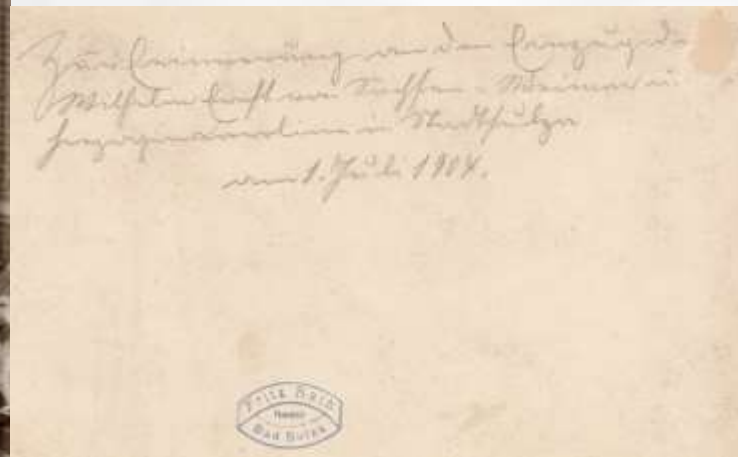 Zur Erinnerung an den Einzug d
Wilhelm Ernst von Sachsen-Weimar u.
in Stadtsulza
am 1. Juli 1904.
Fritz
Bad Sulza